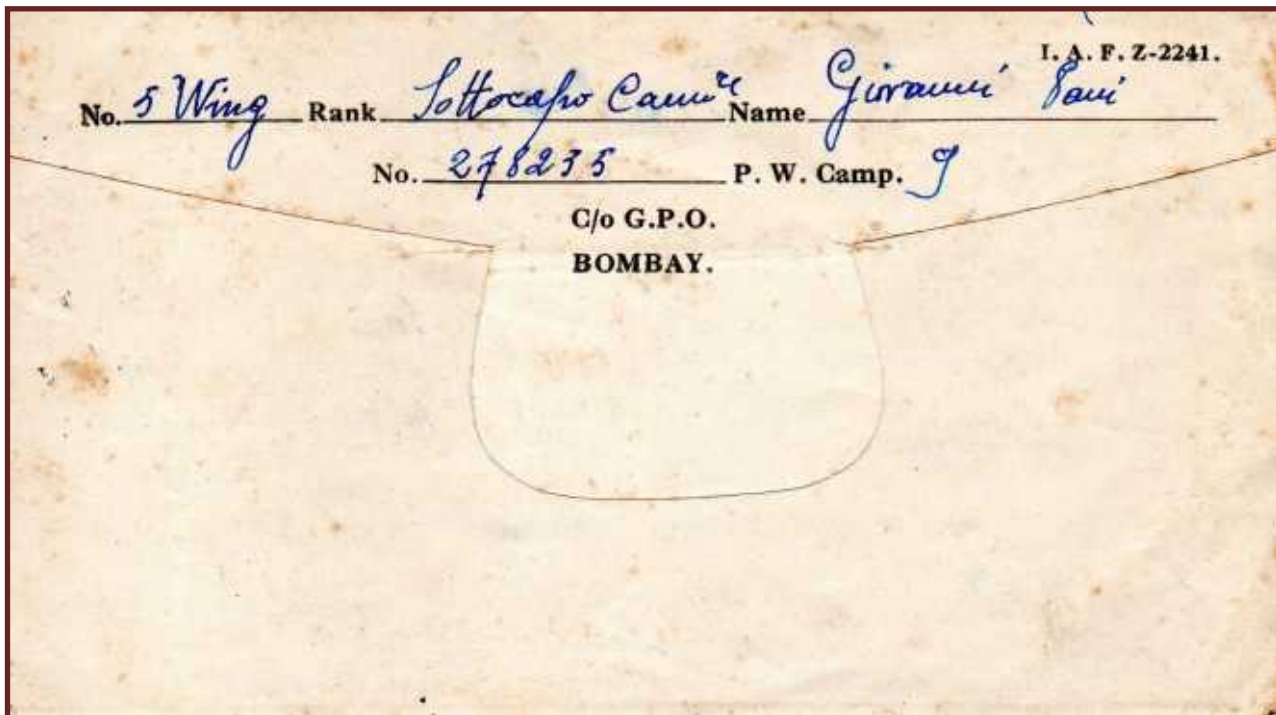 I. A. F. Z-2241.
No. 5 Wing Rank Sottocapo Cann.re Name Giovanni
No. 278235 P. W. Camp. 9
C/o G.P.O.
BOMBAY.